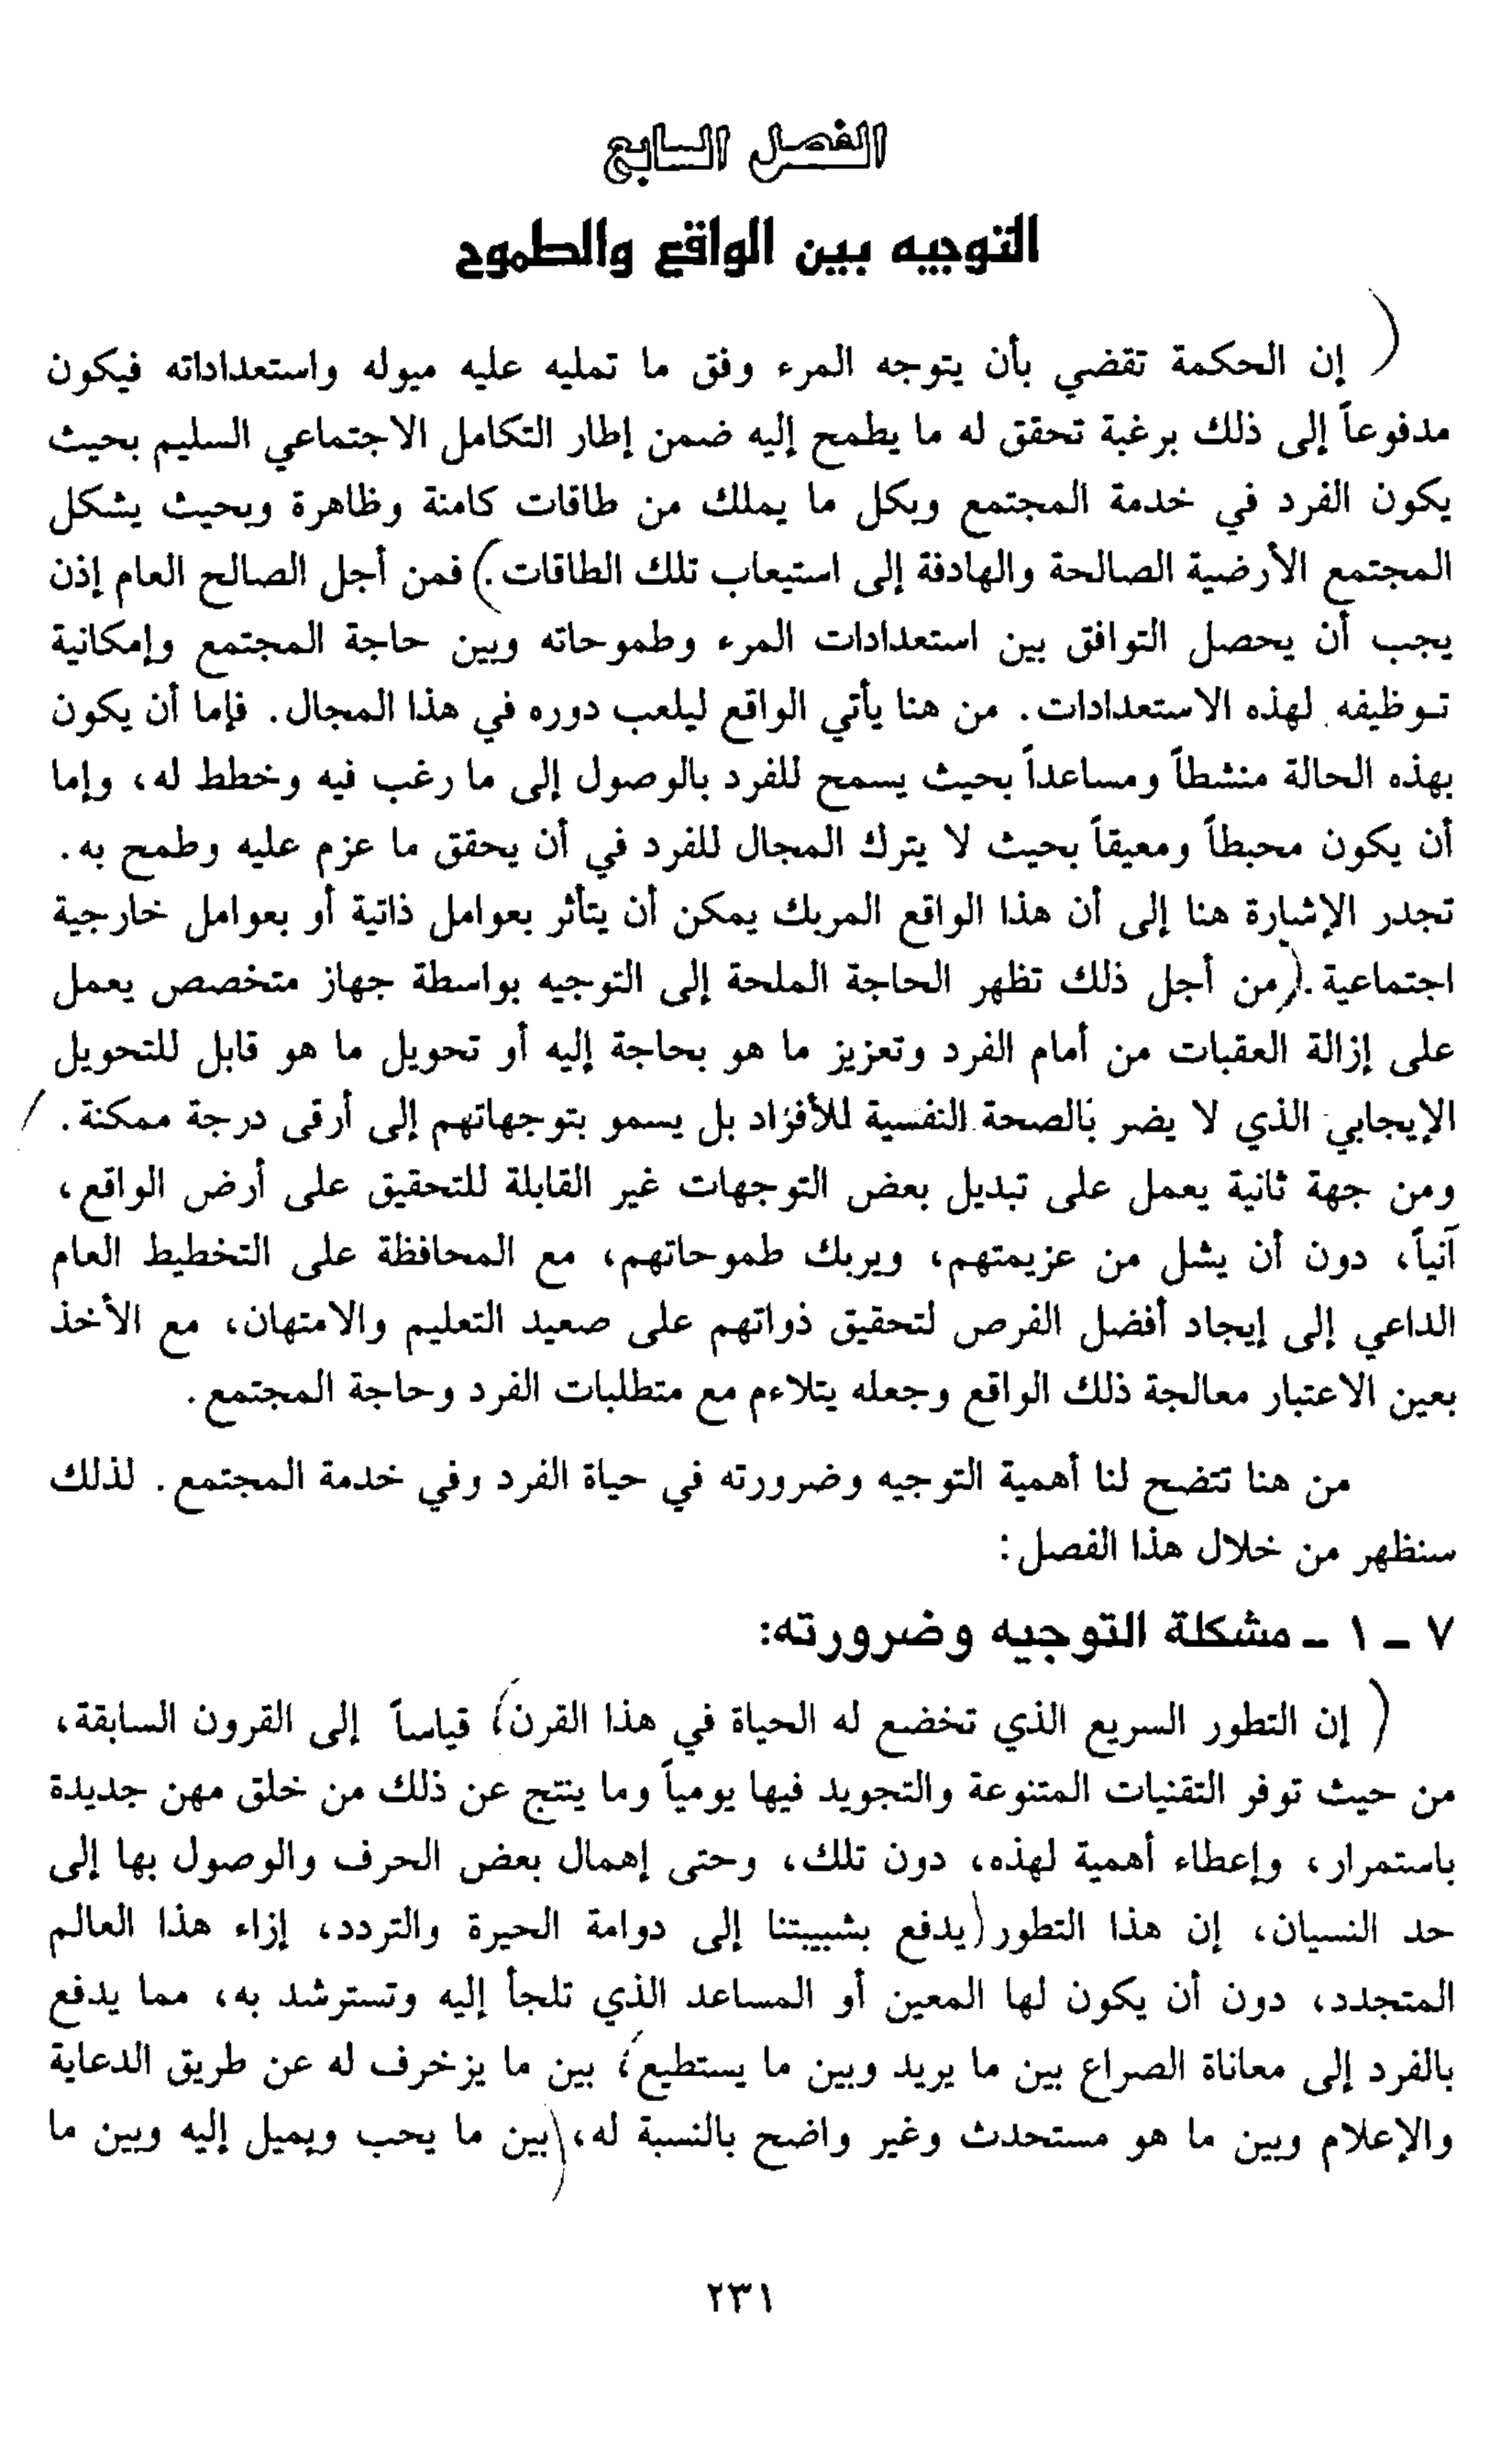 الفصل السابع
التوجيه بين الواقع والطموح
( إن الحكمة تقضي بأن يتوجه المرء وفق ما تمليه عليه ميوله واستعداداته فيكون
مدفوعاً إلى ذلك برغبة تحقق له ما يطمح إليه ضمن إطار التكامل الاجتماعي السليم بحيث
يكون الفرد في خدمة المجتمع وبكل ما يملك من طاقات كامنة وظاهرة وبحيث يشكل
المجتمع الأرضية الصالحة والهادفة إلى استيعاب تلك الطاقات.) فمن أجل الصالح العام إذن
يجب أن يحصل التوافق بين استعدادات المرء وطموحاته وبين حاجة المجتمع وإمكانية
توظيفه لهذه الاستعدادات. من هنا يأتي الواقع ليلعب دوره في هذا المجال. فإما أن يكون
بهذه الحالة منشطاً ومساعداً بحيث يسمح للفرد بالوصول إلى ما رغب فيه وخطط له، وإما
أن يكون محبطاً ومعيقاً بحيث لا يترك المجال للفرد في أن يحقق ما عزم عليه وطمح به.
تجدر الإشارة هنا إلى أن هذا الواقع المربك يمكن أن يتأثر بعوامل ذاتية أو بعوامل خارجية
اجتماعية. (من أجل ذلك تظهر الحاجة الملحة إلى التوجيه بواسطة جهاز متخصص يعمل
على إزالة العقبات من أمام الفرد وتعزيز ما هو بحاجة إليه أو تحويل ما هو قابل للتحويل
الإيجابي الذي لا يضر بالصحة النفسية للأفراد بل يسمو بتوجهاتهم إلى أرقى درجة ممكنة. /
ومن جهة ثانية يعمل على تبديل بعض التوجهات غير القابلة للتحقيق على أرض الواقع،
آنياً، دون أن يشل من عزيمتهم، ويربك طموحاتهم، مع المحافظة على التخطيط العام
الداعي إلى إيجاد أفضل الفرص لتحقيق ذواتهم على صعيد التعليم والامتهان، مع الأخذ
بعين الاعتبار معالجة ذلك الواقع وجعله يتلاءم مع متطلبات الفرد وحاجة المجتمع.
من هنا تتضح لنا أهمية التوجيه وضرورته في حياة الفرد وفي خدمة المجتمع. لذلك
سنظهر من خلال هذا الفصل:
٧ - ١ - مشكلة التوجيه وضرورته:
( إن التطور السريع الذي تخضع له الحياة في هذا القرن) قياساً إلى القرون السابقة،
من حيث توفر التقنيات المتنوعة والتجويد فيها يومياً وما ينتج عن ذلك من خلق مهن جديدة
باستمرار، وإعطاء أهمية لهذه، دون تلك، وحتى إهمال بعض الحرف والوصول بها إلى
حد النسيان، إن هذا التطور (يدفع بشبيبتنا إلى دوامة الحيرة والتردد، إزاء هذا العالم
المتجدد، دون أن يكون لها المعين أو المساعد الذي تلجأ إليه وتسترشد به، مما يدفع
بالفرد إلى معاناة الصراع بين ما يريد وبين ما يستطيع، بين ما يزخرف له عن طريق الدعاية
والإعلام وبين ما هو مستحدث وغير واضح بالنسبة له، (بين ما يحب ويميل إليه وبين ما
٢٣١